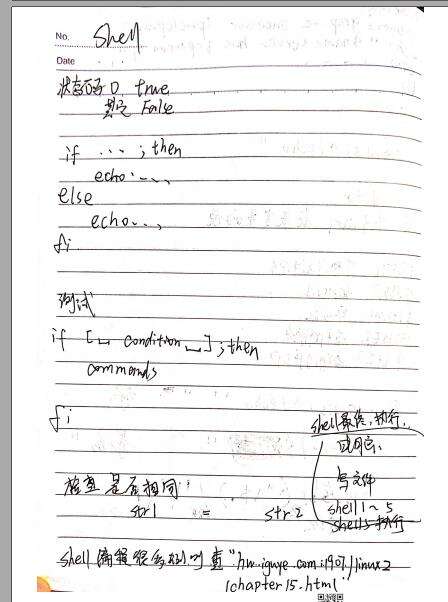 No. Shell
Date
状态码 0 true
其它 False
if ... ; then
echo ....
else
echo....
fi
测试
if [␣ condition ␣] ; then
commands
fi
shell最终,执行.
写文件
shell 1~5
shell 5 执行
检查是否相同:
str1 = str2
shell编程很多 可查
/chapter15.html